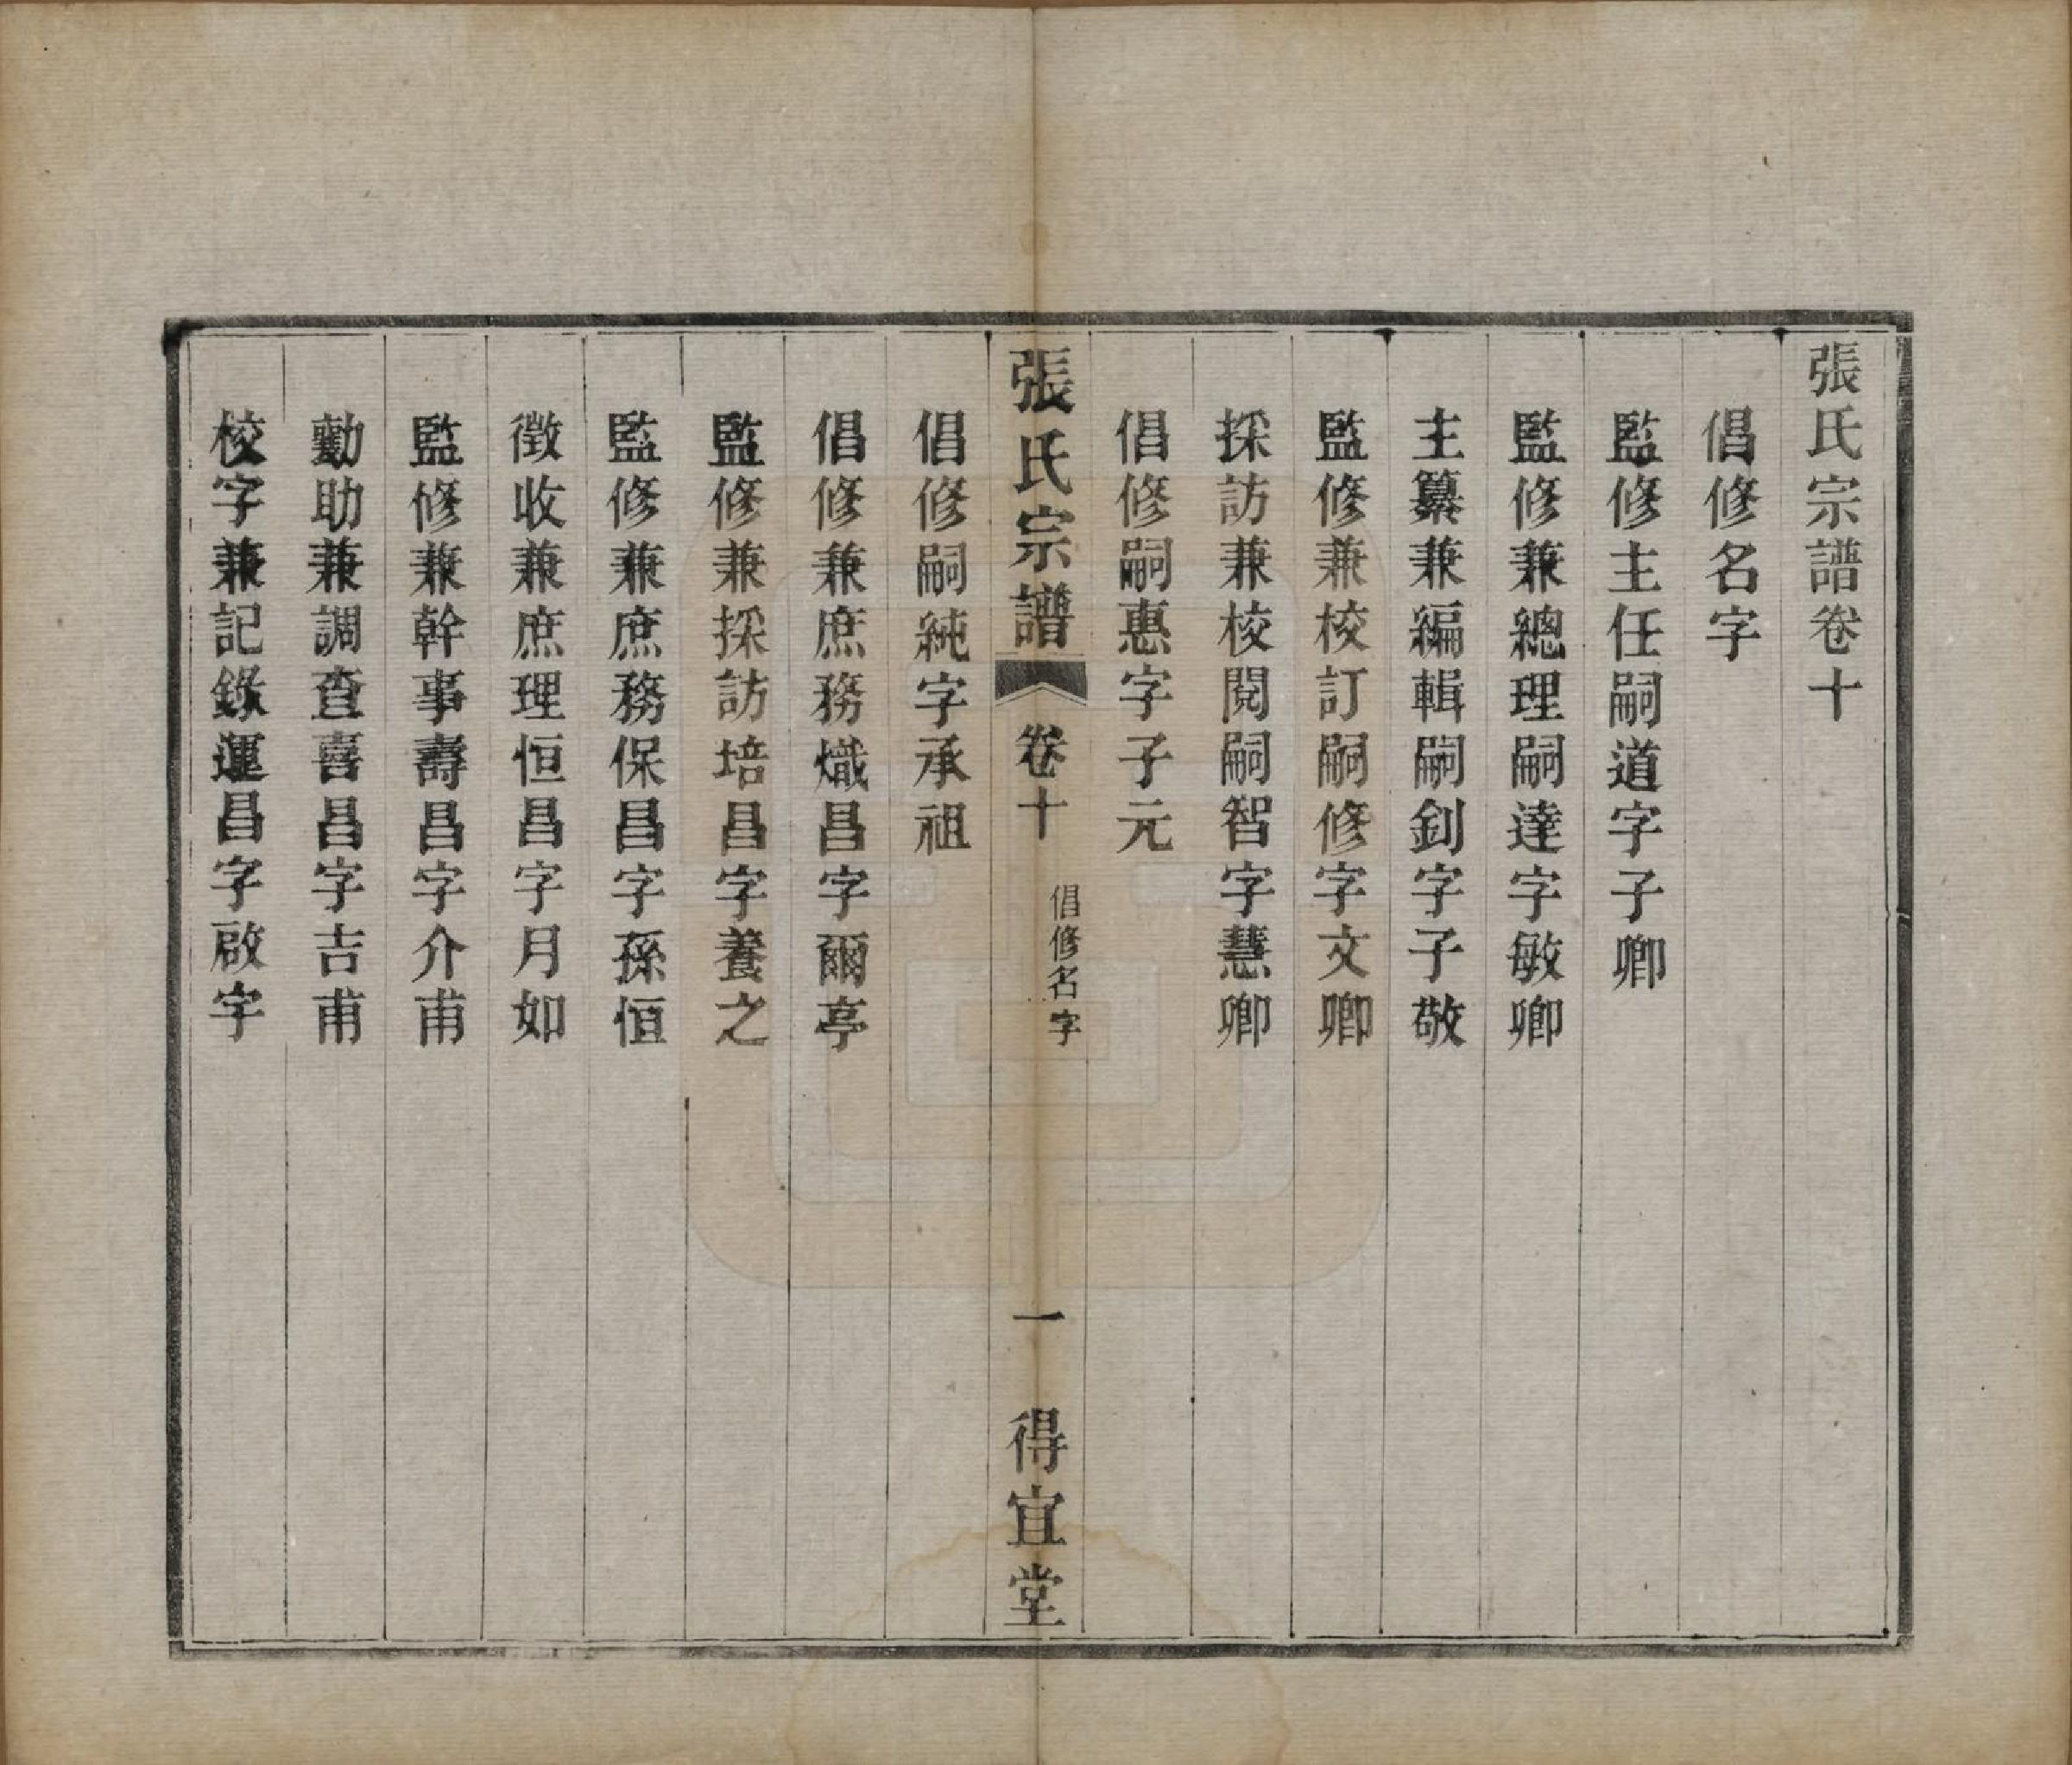 張氏宗譜卷十
倡修名字
監修主任嗣道字子卿
監修兼總理嗣達字敏卿
主纂兼編輯嗣釗字子敬
監修兼校訂嗣修字文卿
採訪兼校閱嗣智字慧卿
倡修嗣惠字子元
張氏宗譜
卷十
倡修名字
一
得宜堂
倡修嗣純字承祖
倡修兼庶務熾昌字爾亭
監修兼採訪培昌字養之
監修兼庶務保昌字孫恒
徵收兼庶理恒昌字月如
監修兼幹事壽昌字介甫
勷助兼調查喜昌字吉甫
校字兼記錄運昌字啟宇